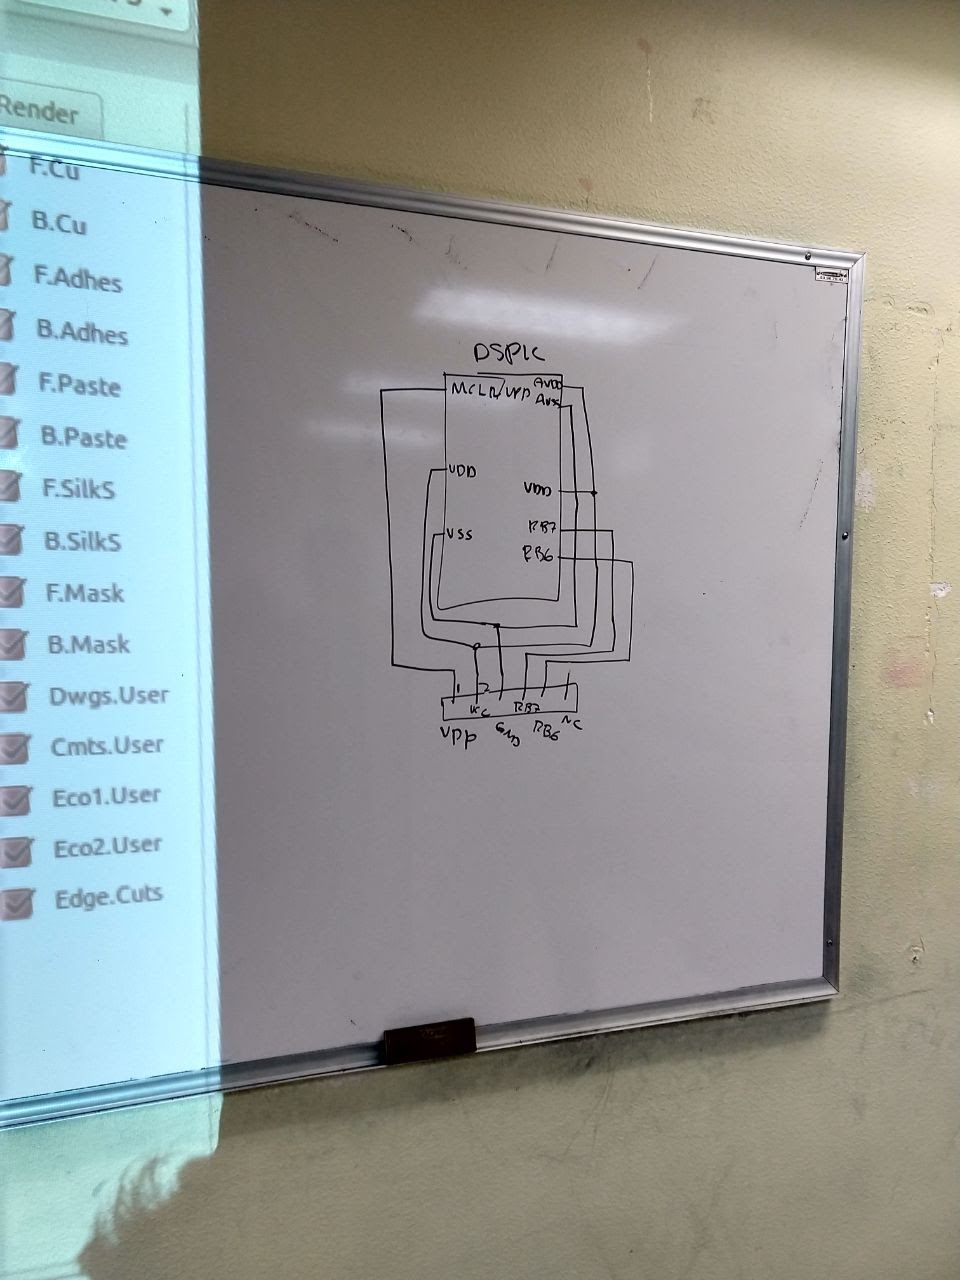 Render
F.Cu
B.Cu
F.Adhes
B.Adhes
F.Paste
B.Paste
F.SilkS
B.SilkS
F.Mask
B.Mask
Dwgs.User
Cmts.User
Eco1.User
Eco2.User
Edge.Cuts
DSPIC
MCLR/VPP AVDD
AVSS
VDD
VDD
VSS
RB7
RB6
1 2
VCC RB7
VPP GND RB6 NC